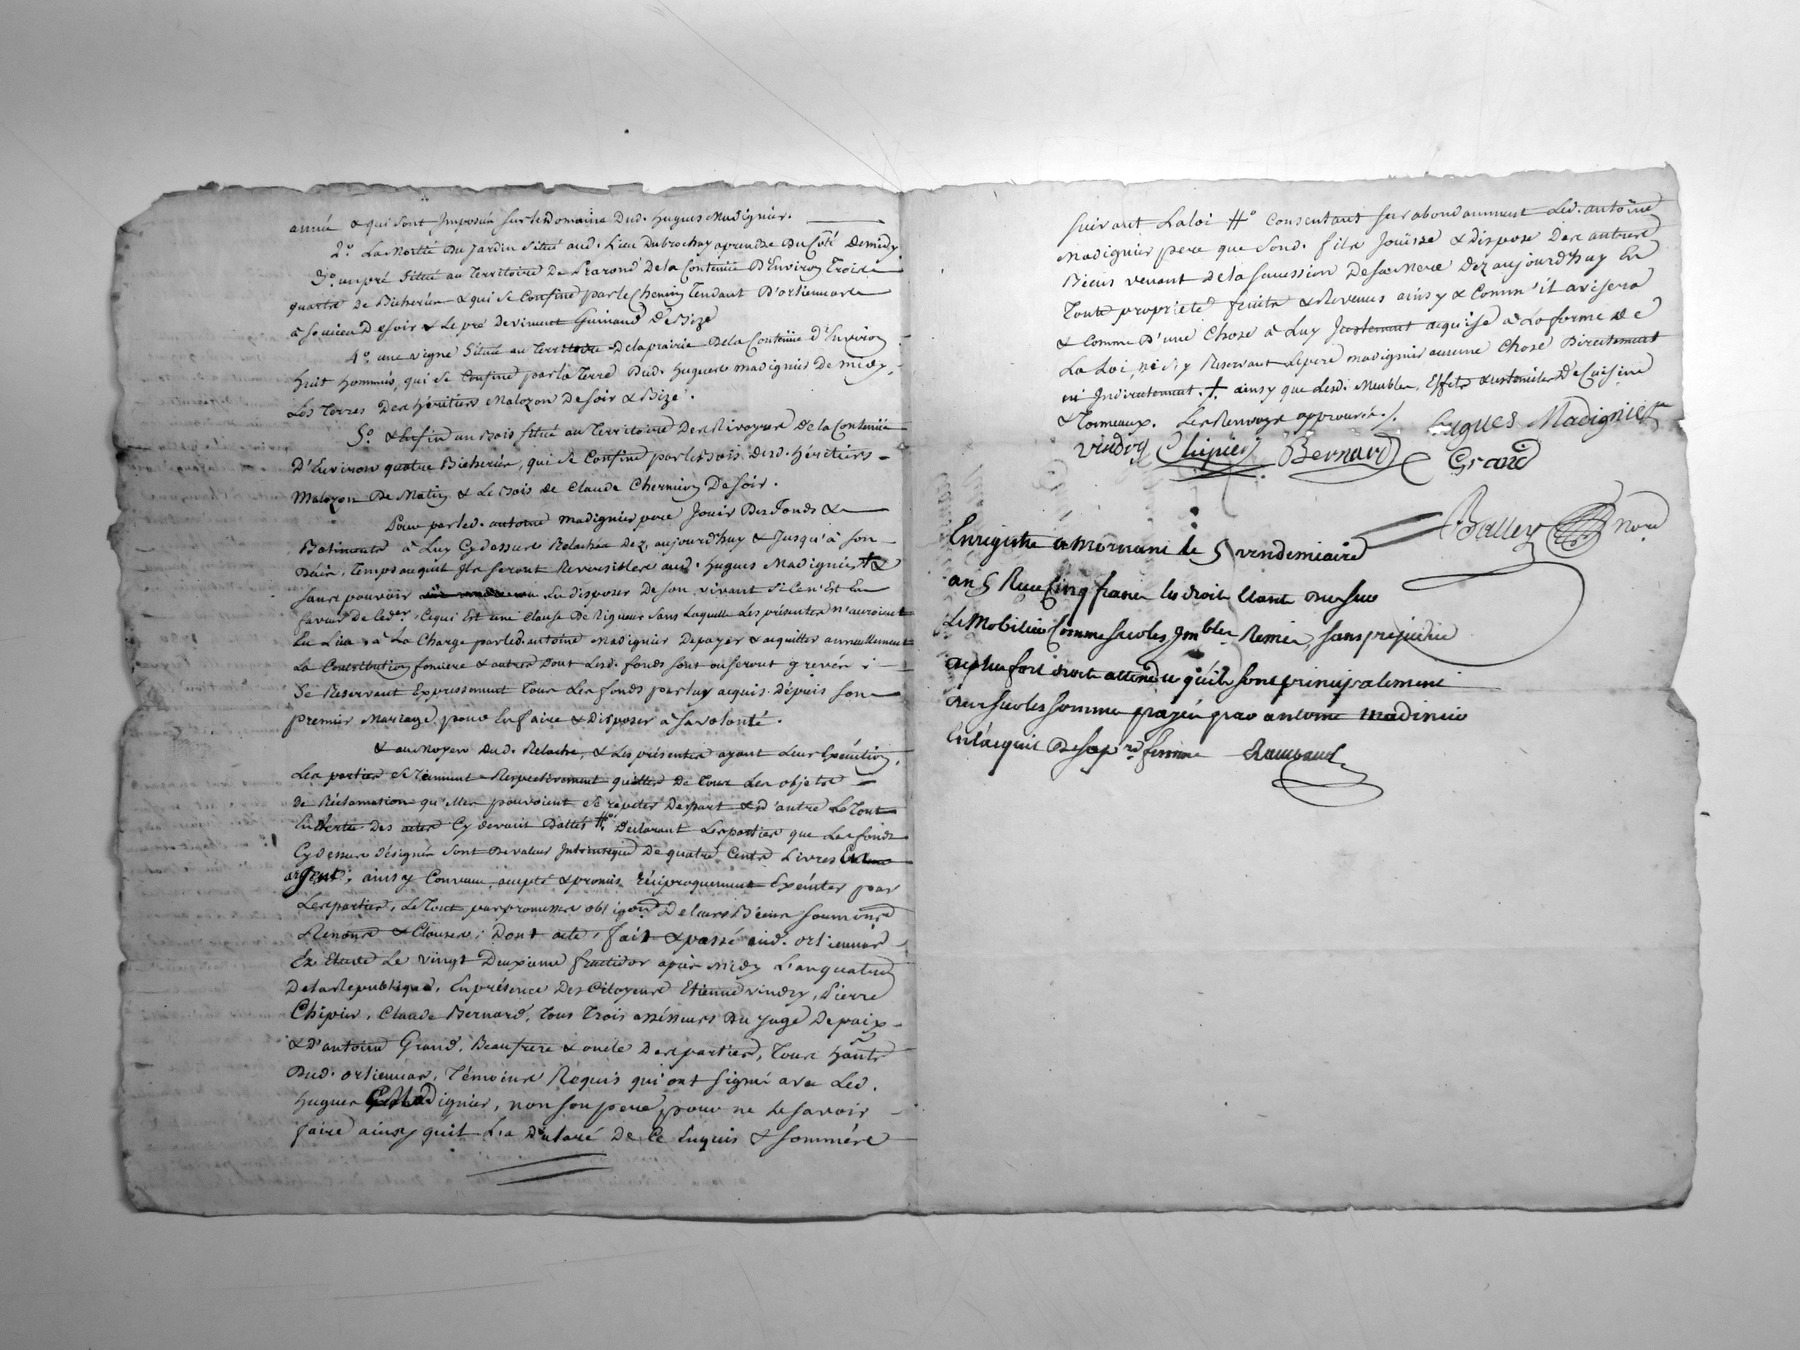 année & qui sont Imposés sur le domaine Dud. hugues Madignier.
2.° La Moitié du jardin situé aud. Lieu Dubrochay aprendre Du Coté de midy
3.° un pré situé au Territoire De De la Contenüe D'Environ Trois
quarts de Bicherée & qui se Confine par le Chemin Tendant D'orlienas
à Soucieu De soir & le pré de vincent Guinand De Bize
4.° une vigne Située au Territoire De la prairie De la Contenüe d'Environ
huit hommées, qui se Confine par la Terre Dud. hugues madignier De midy,
Les Terres Des héritiers Malozon De soir & Bize.
5.° & Enfin un Bois situé au Territoire Des Rivoyres De la Contenüe
D'Environ quatre Bicherées, qui se Confine par les Bois desd. héritiers
Malozon De Matin & Le Bois de Claude Chermieux De soir.
Pour par led. antoine Madignier pere Jouir Des fonds &
Batiments à Luy Cydessus Relachés Dez aujourd'huy & Jusqu'à son
Décès, Temps auquel Ils seront Reversibles aud. hugues Madignier +&
sans pouvoir En disposer De son vivant si Ce n'est En
faveur de led.er, Ce qui Est une Clause De Rigueur sans Laquelle Les présentes n'auroient
Eu Lieu & à La Charge par led. antoine Madignier De payer & acquitter annuellement
La Contribution fonciere & autres Dont Lesd. fonds sont ou seront grevés
Se Reservant Expressement Tous Les fonds par luy acquis depuis son
premier Mariage, pour En faire & Disposer à sa volonté.
& au Moyen Dud. Relache, & Les présentes ayant Leur Exécution,
Les parties se Tiennent Respectivement quittes De Tous Les objets
de Réclamation qu'Elles pouvoient se repeter De part & D'autre Le Tout
En vertu Des actes Cy devant Dattés #.° Déclarant Les parties que Les fonds
Cy dessus désignés sont De valeur Intrinseque De quatre Cents Livres En
argent, ainsy Convenu, accepté & promis Réciproquement Exécuter par
Les parties, Le Tout par promesse obligon De leurs Biens soumons
Renons & Clauses; Dont acte, fait & passé aud. orlienas
En Etude Le vingt Deuxieme fructidor après Midy L'an quatre
De la République, En présence Des Citoyens Etienne vindry, Pierre
Chipier, Claude Bernard, Tous Trois assesseurs Du juge De paix
& D'antoine Grand, Beaufrere & oncle Des parties, Tous habts
Dud. orlienas, Témoins Requis qui ont signé avec Led.
hugues Madignier, non son pere, pour ne Le savoir
faire ainsy qu'il L'a Déclaré De Ce Enquis & sommés
suivant La Loi #.° Consentant surabondamment Led. antoine
Madignier pere que sond. fils Jouisse & Dispose Des autres
Biens venant de la succession De sa Mere Dez aujourd'huy En
Toute propriété fruits & Revenus ainsy & Comm'il avisera
& Comme D'une Chose à Luy Justement acquise à La forme De
La Loi, ne s'y Reservant Le pere madignier aucune Chose Directement
ni Indirectement. +. ainsy que Lesd. Meubles, Effets & ustensiles De Cuisine
& Tonneaux. Les Renvoys approuvés./.
hugues Madignier
vindry Chipier Bernard Grand
Balley Nore
Enregistré a Mornant le 5 vendemiaire
an 5 Reçu Cinq francs les droits Etant Dus sur
Le Mobilier Comme sur les Imbles Remis, sans prejudice
au plus fort droit attendu qu'ils sont principalement
Dus sur les sommes payées par antoine Madinier
En l'acquit De sa pre femme Rambaud